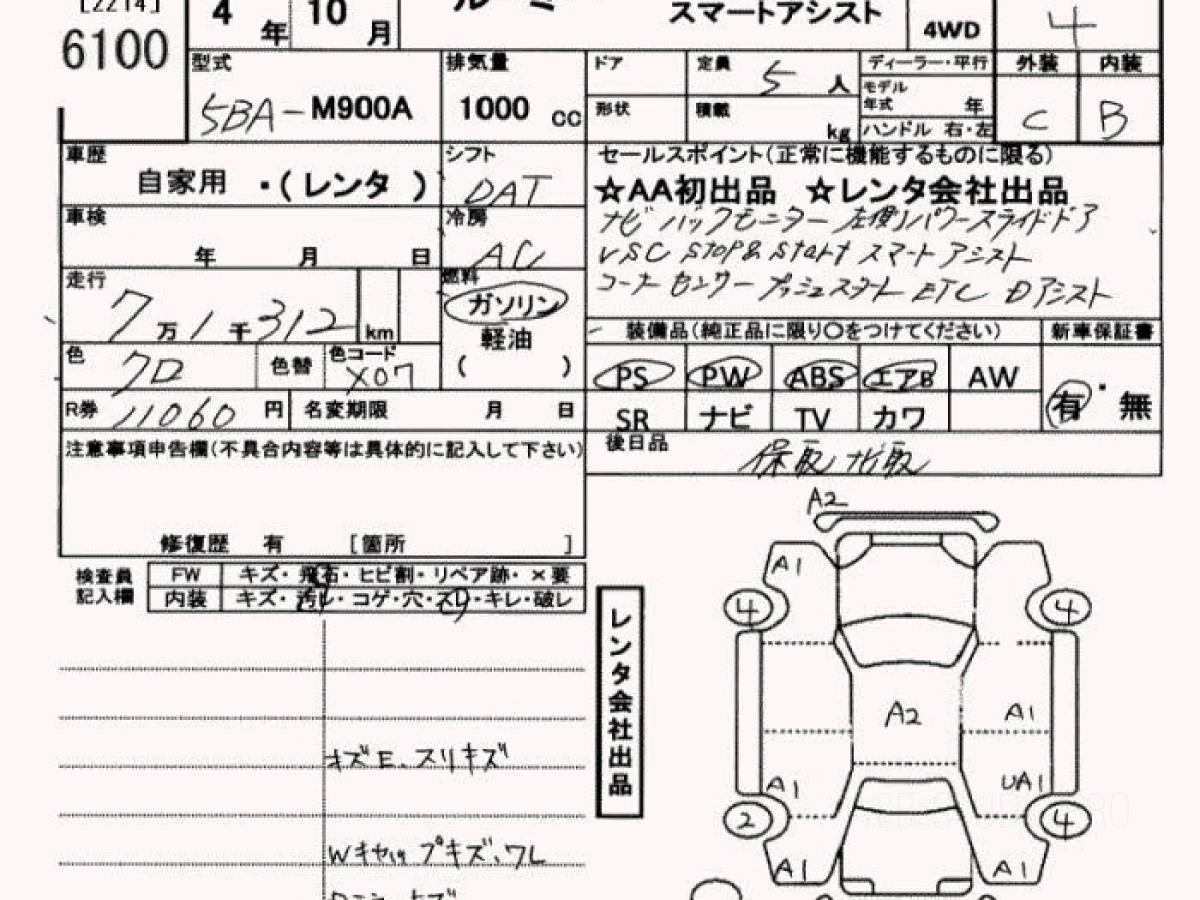 [2214]
6100
4年 10月
ルーミー
スマートアシスト
4WD
4
型式
5BA-M900A
排気量
1000 cc
ドア
定員 5 人
形状
積載 kg
ディーラー・平行
モデル年式 年
ハンドル 右・左
外装 内装
C B
車歴
自家用 ・(レンタ)
シフト
DAT
セールスポイント(正常に機能するものに限る)
☆AA初出品 ☆レンタ会社出品
ナビ バックモニター 左側パワースライドドア
VSC Stop& Start スマートアシスト
コーナーセンサー プッシュスタート ETC Dアシスト
車検
年 月 日
冷房
AC
走行
7万1千312 km
燃料
ガソリン
軽油
( )
色
色替
色コード
X07
装備品(純正品に限り○をつけてください)
新車保証書
PS PW ABS エアB AW
SR ナビ TV カワ
有・無
R券 11060 円
名変期限 月 日
後日品
保取 ナビ取
注意事項申告欄(不具合内容等は具体的に記入して下さい)
修復歴 有 [箇所 ]
検査員記入欄
FW キズ・飛石・ヒビ割・リペア跡・×要
内装 キズ・汚レ・コゲ・穴・スレ・キレ・破レ
レンタ会社出品
A2
A1
4 4
A2 A1
A1 UA1
2 4
A1 A1
スリキズ
Wキャップキズ、ワレ